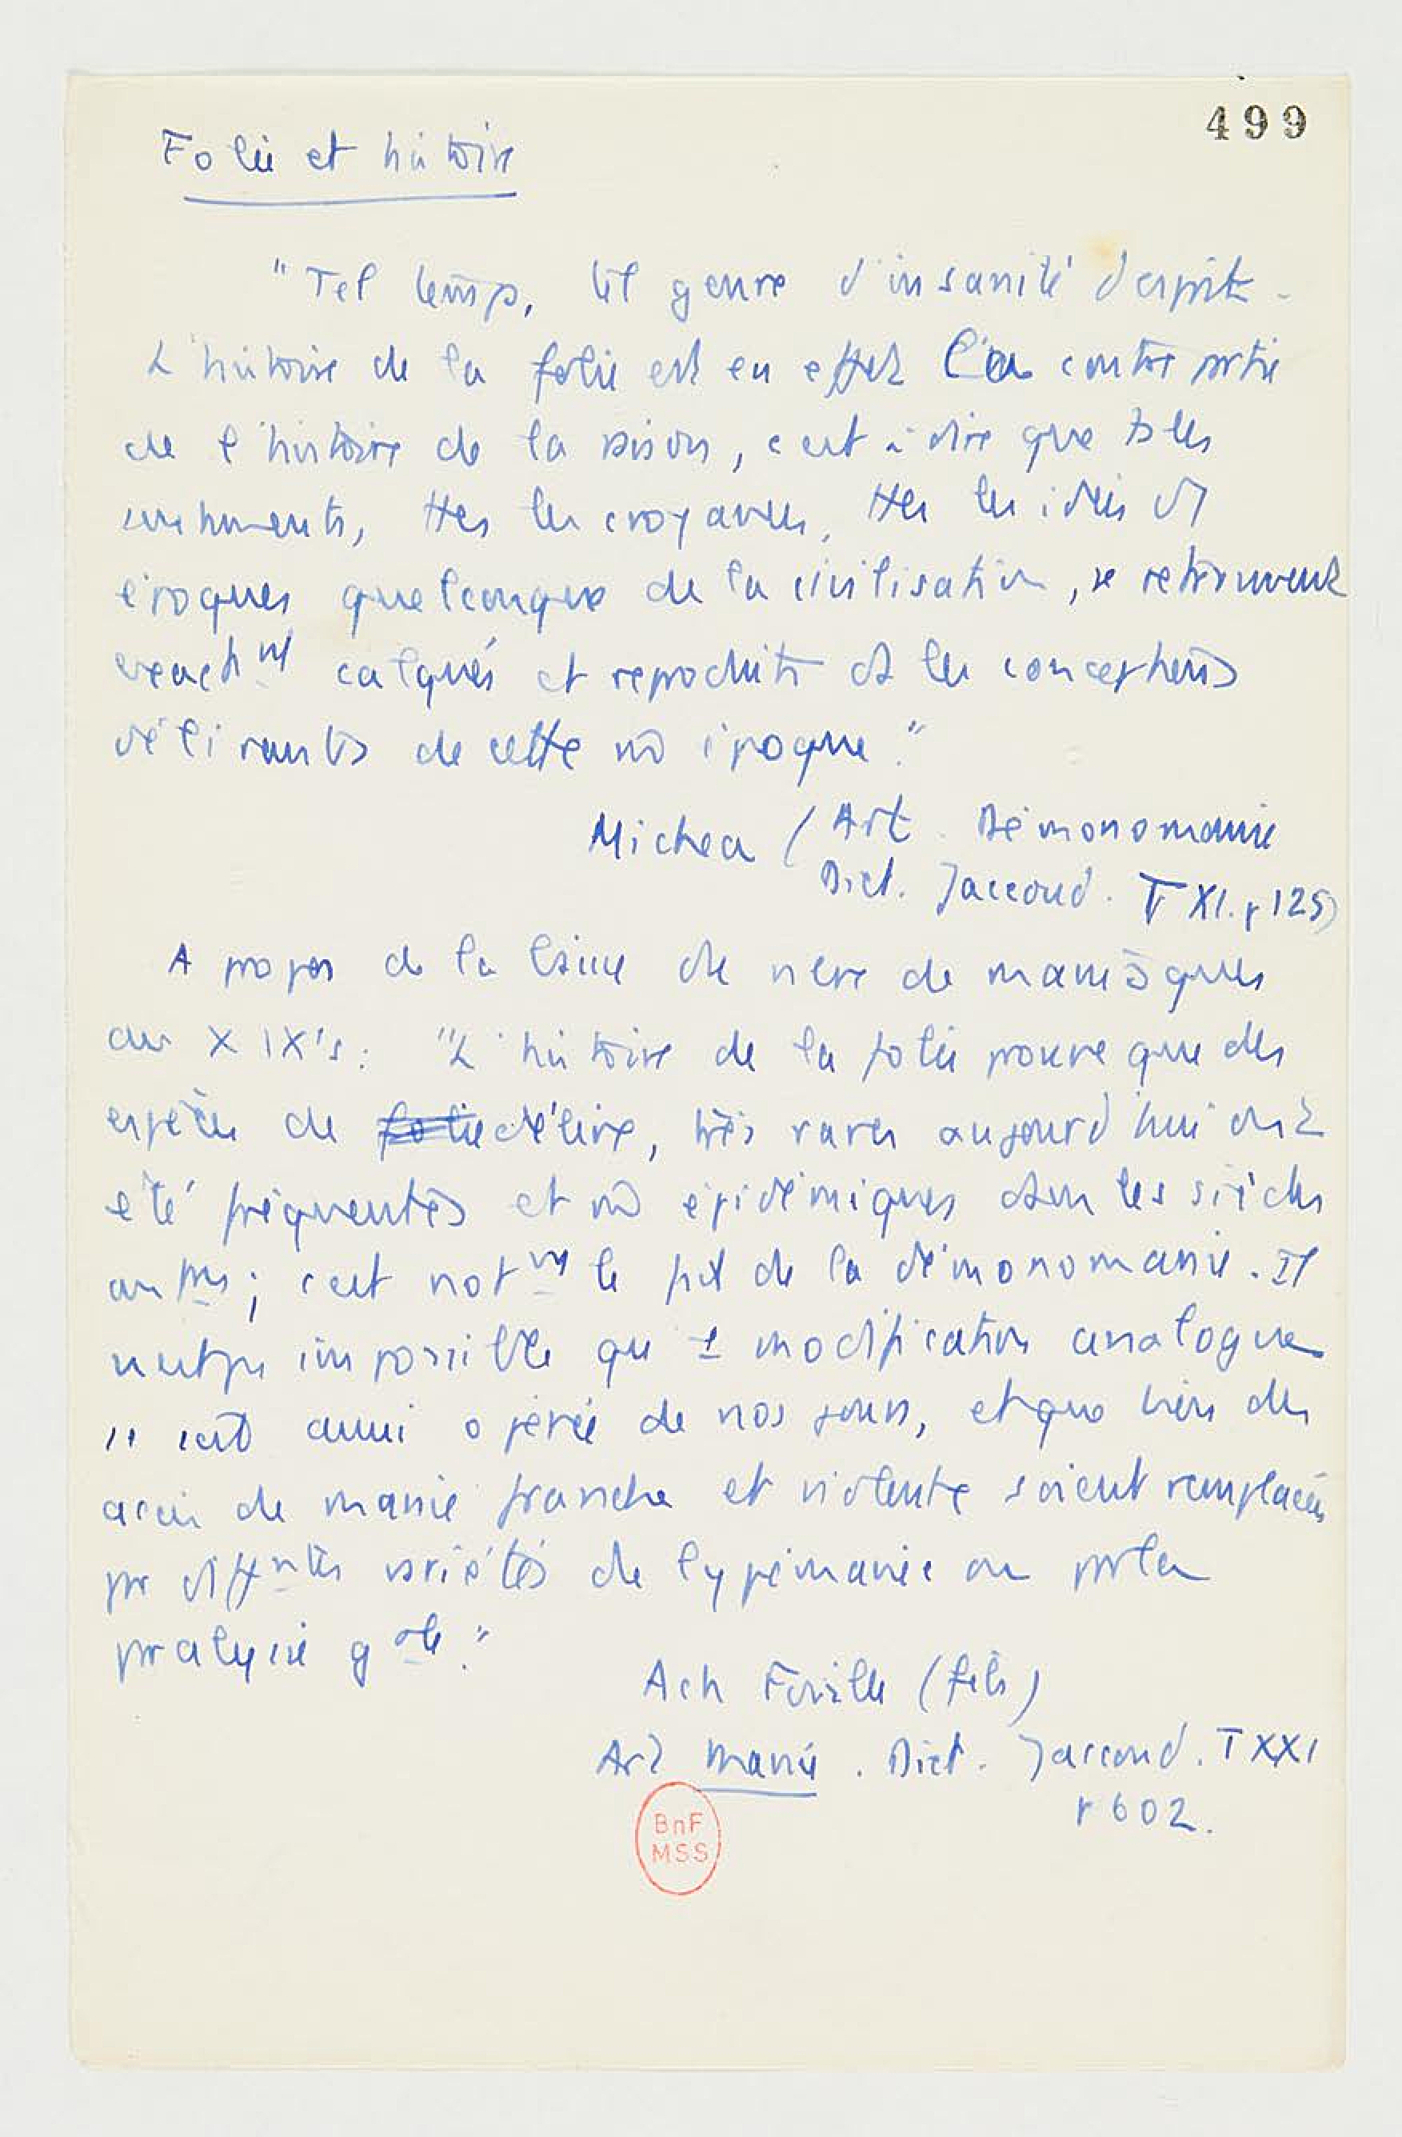 499
Folie et histoire
"Tel temps, tel genre d'insanité d'esprit.
L'histoire de la folie est en effet la contre partie
de l'histoire de la raison, c'est à dire que ts les
sentiments, ttes les croyances, ttes les idées ds
époques quelconque de la civilisation, se retrouvent
calqués et reproduits ds les conceptions
délirantes de cette m̂ époque."
Michea (Art. Démonomanie
Dict. Jaccoud. T XI. p 125)
A propos de la de maniaques
au XIX's: "L'histoire de la folie prouve que des
espèces de folie délire, très rares aujourd'hui ont
été fréquentes et m̂ épidémiques dans les siècles
; c'est notmt le fait de la démonomanie. Il
n'est pas impossible qu' 1 modification analogue
aussi opérée de nos jours, et que bien des
accès de manie franche et violente soient remplacés
pr diffntes variétés de lypémanie ou par la
paralysie gale."
Ach Foville (fils)
Art Manie. Dict. Jaccoud. T XXI
p 602.
BnF
MSS